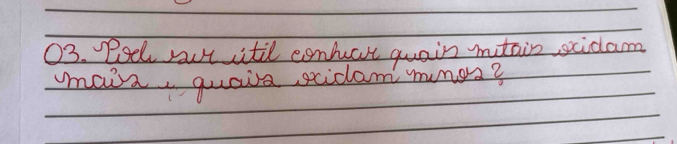 03. Pode ser útil conhecer quais metais oxidam
mais e quais oxidam menos?